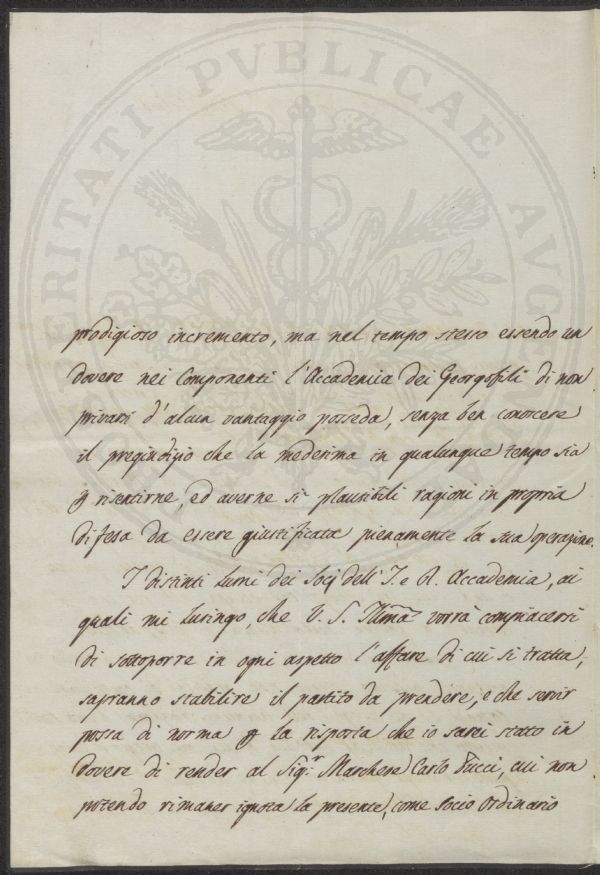 prodigioso incremento, ma nel tempo stesso essendo un
dovere nei Componenti l'Accademia dei Georgofili di non
privarsi d'alcun vantaggio posseda, senza ben conoscere
il pregiudizio che la medesima in qualunque tempo sia
p risentirne, ed averne sì plausibili ragioni in propria
difesa da essere giustificata pienamente la sua operazione.
I distinti lumi dei Socj dell'I. e R. Accademia, ai
quali mi lusingo, che V. S. Illma vorrà compiacersi
di sottoporre in ogni aspetto l'affare di cui si tratta,
sapranno stabilire il partito da prendere, e che servir
possa di norma p la risposta che io sarei stato in
dovere di render al Sigr. Marchese Carlo Pucci, cui non
potendo rimaner ignota la presente, come Socio Ordinario
PROSPERITATI PVBLICAE AVGENDAE